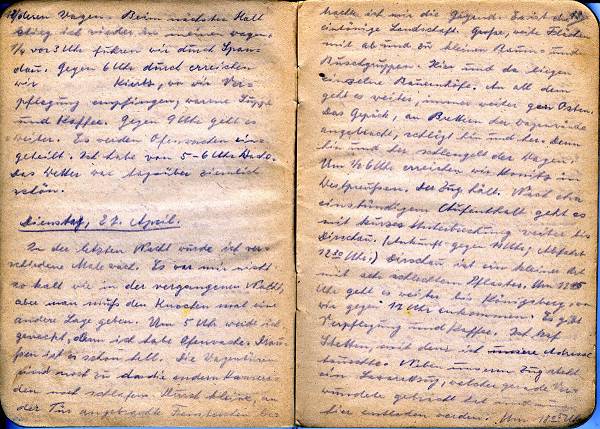 anderen Wagen. Beim nächsten Halt
stieg ich wieder in meinen Wagen.
1/4 vor 3 Uhr fuhren wir durch Span-
dau. Gegen 6 Uhr durch erreichen
wir Kietz, wo wir Ver-
pflegung empfingen, warme Suppe
und Kaffee. Gegen 9 Uhr geht es
weiter. Es werden Ofenwachen ein-
geteilt. Ich habe von 5-6 Uhr Wache.
Das Wetter war tagsüber ziemlich
schön.
Dienstag, 27. April.
In der letzten Nacht wurde ich ver-
schiedene Male wach. Es war mir nicht
so kalt wie in der vergangenen Nacht,
aber man muß den Knochen mal eine
andere Lage geben. Um 5 Uhr werde ich
geweckt, denn ich habe Ofenwache. Drau-
ßen ist es schon hell. Die Wagentüren
sind noch zu da die andern Kamera-
den noch schlafen. Durch kleine, an
der Tür angebrachte Fensterchen be-
trachte ich mir die Gegend. Es ist eine
eintönige Landschaft. Große, weite Flächen
mit ab und zu kleinen Baum- und
Buschgruppen. Hier und da liegen
einzelne Bauernhöfe. An all dem
geht es weiter, immer weiter gen Osten.
Das Gepäck, an Brettern der Wagenwände
angebracht, schlägt hin und her. Denn
hin und her schlengelt der Wagen.
Um 1/2 6 Uhr erreichen wir Konitz in
Westpreußen. Der Zug hält. Nach etwa
einstündigem Aufenthalt geht es
mit kurzer Unterbrechung weiter bis
Dirschau. (Ankunft gegen Uhr; Abfahrt
12 30 Uhr.) Dirschau ist ein kleiner Ort
mit sehr schlechtem Pflaster. Um 12 45
Uhr geht es weiter bis Königsberg, wo
wir gegen 17 Uhr ankommen. Es gibt
Verpflegung und Kaffee. Ich traf
Stetten, mit dem ich unsere Adresse
tauschte. Neben unserem Zug steht
ein Lazarettzug, welcher gerade Ver-
wundete gebracht hat und
hier entladen werden. Um 18 25 Uhr